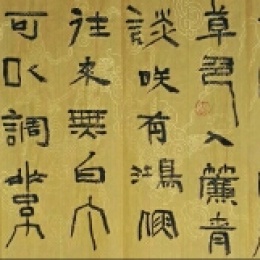 草色入簾青
談咲有鴻儒
往来無白丁
可以調素